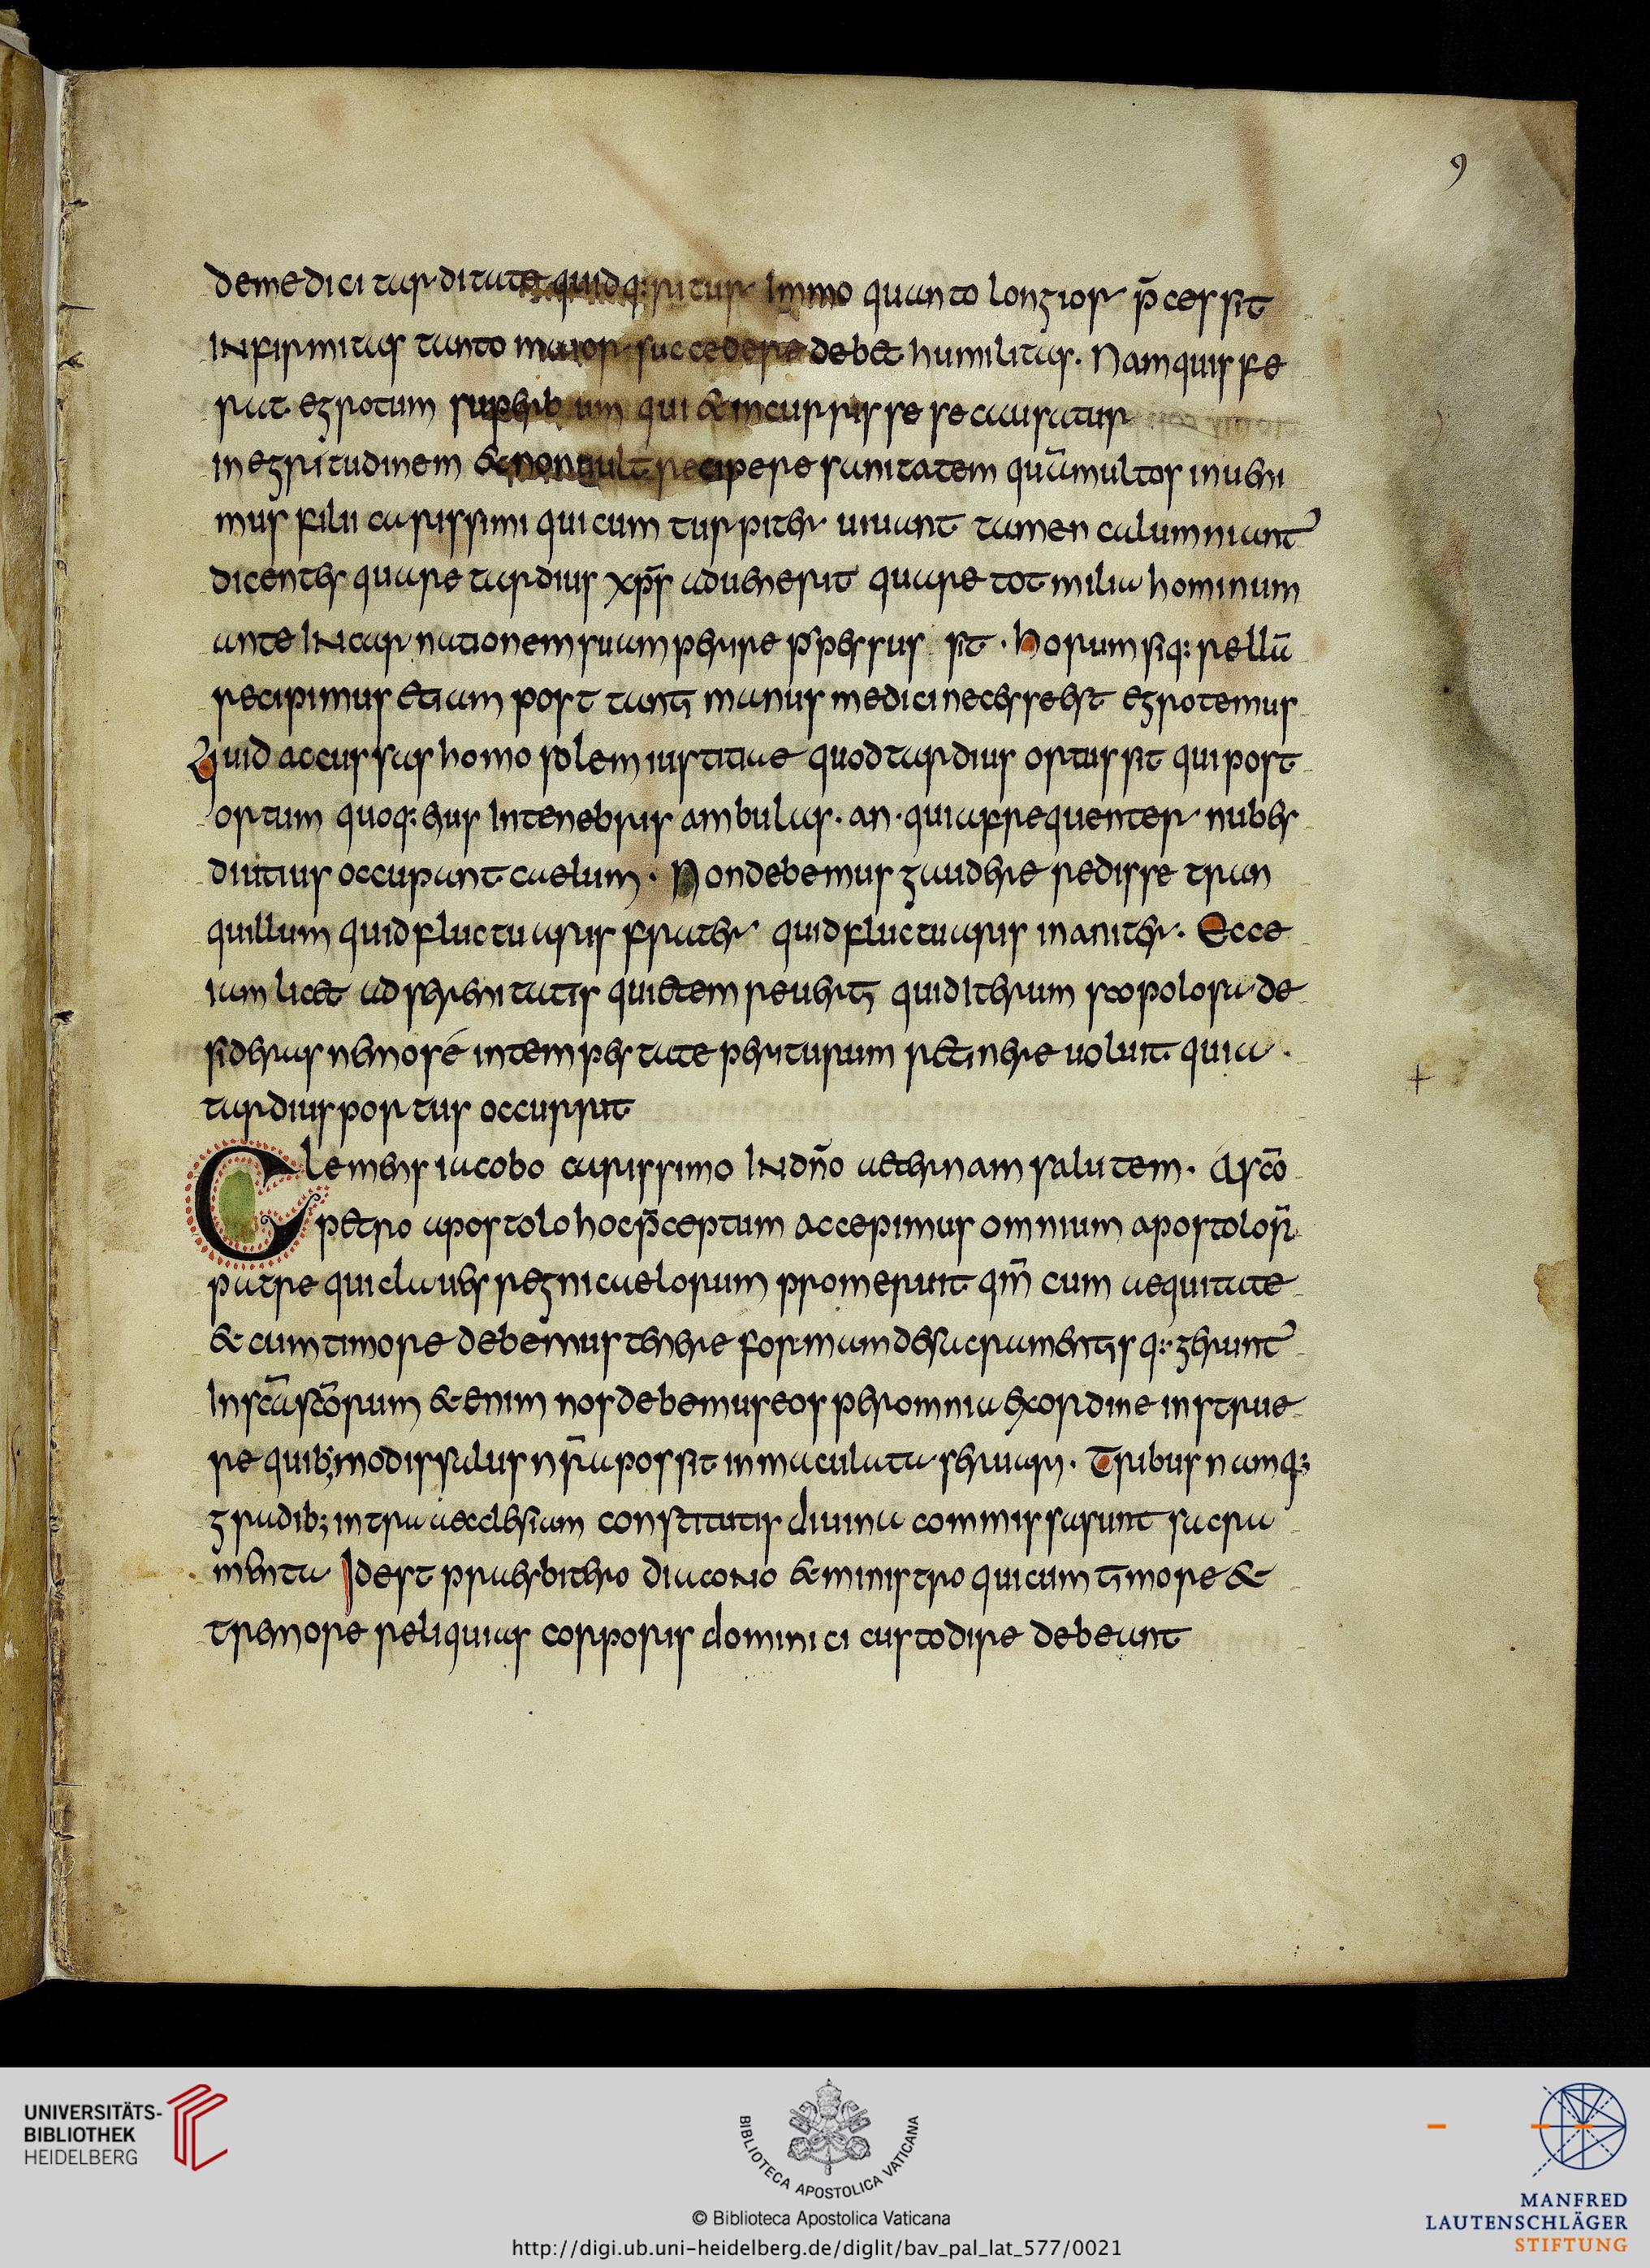 9
demedici tarditate quid q:ritur Immo quanto longior p̄cessit
INfirmitas tanto maior succedere debet humilitas. Namquis fe
rat egrotum superb um qui & incurrisse se causatur
in egritudinem & non uult recipere sanitatem quāmultos inueni
mus filii carissimi qui cum turpiter uiuant tamen calumniant᷑
dicentes quare tardius xp̄s aduenerit quare tot milia hominum
ante INcarnationem suam perire p̄persus sit. horum siq: rellū
recipimus etiam post tanti manus medici necesse est egrotemus
Quid accussas homo solem iustitiae quod tardius ortus sit qui post
ortum quoq: eius Intenebris ambulas. an. quia frequenter nubes
diutius occupant caelum. Non debemus gaudere redisse tran
quillum quid fluctuaris frater quid fluctuaris inaniter. Ecce
iam licet ad serenitatis quietem reuerti quid Iterum scopolosa de
sideras nemoré intempestate periturum retinere uoluit quia
tardius portus occurrit
Clemens iacobo carissimo INdn̄o aeternam salutem. A sc̄o
petro apostolo hoc p̄ceptum accepimus omnium apostolor̄
patre qui claues regni caelorum promeruit qm̄ cum aequitate
& cum timore debemus tenere formam de sacramentis q: gerunt᷑
In sc̄a sc̄orum & enim nos debemus eos per omnia ex ordine instrue
re quib; modis salus nr̄a possit inmaculata seruari. Tribus namq:
gradib; intra aecclesiam constitutis diuina commissa sunt sacra
menta Idest praesbitero diacoNo & ministro qui cum timore &
tremore reliquias corporis dominici custodire debeant
+
UNIVERSITÄTS-
BIBLIOTHEK
HEIDELBERG
BIBLIOTECA APOSTOLICA VATICANA
© Biblioteca Apostolica Vaticana
http://digi.ub.uni-heidelberg.de/diglit/bav_pal_lat_577/0021
MANFRED
LAUTENSCHLÄGER
STIFTUNG